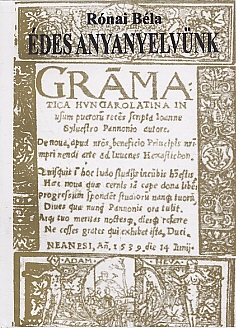 Rónai Béla
ÉDES ANYANYELVÜNK
GRĀMA-
TICA HVNGAROLATINA IN
usum puerorū recēs scripta Ioanne
Sylvestro Pannonio autore.
De noua, apud nr̄os, beneficio Principis
nendi arte ad Iuuenes Hexastichon.
Quisquis in hoc ludo studijs incūbis
Hac noua quae cernis iā cape dona libēs
Progressum spondēt studiorū nanq; tuorū
Diues quae nunq; Pannonis ora tulit.
Atq; tuo meritas nostrasq; referre
Ne cesses grates qui exhibet ista, Duci
NEANESI, Añ. 1539. die 14 Iunij.
ADAM HEVA